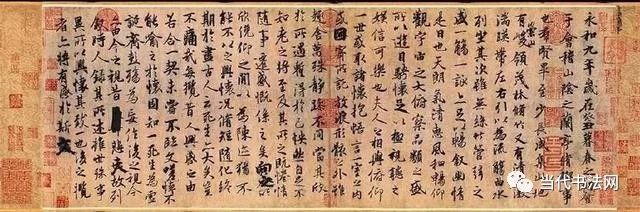 永和九年歲在癸丑暮春之初會
于會稽山陰之蘭亭脩稧事
也羣賢畢至少長咸集此地
有崇山峻領茂林脩竹又有清流激
湍暎帶左右引以為流觴曲水
列坐其次雖無絲竹管弦之
盛一觴一詠亦足以暢敘幽情
是日也天朗氣清惠風和暢仰
觀宇宙之大俯察品類之盛
所以遊目騁懷足以極視聽之
娛信可樂也夫人之相與俯仰
一世或取諸懷抱悟言一室之內
或因寄所託放浪形骸之外雖
趣舍萬殊靜躁不同當其欣
於所遇暫得於己快然自足不
知老之將至及其所之既惓情
隨事遷感慨係之矣向之所
欣俛仰之間以為陳迹猶不
能不以之興懷況脩短隨化終
期於盡古人云死生亦大矣豈
不痛哉每攬昔人興感之由
若合一契未嘗不臨文嗟悼不
能喻之於懷固知一死生為虛
誕齊彭殤為妄作後之視今
亦由今之視昔悲夫故列
敘時人錄其所述雖世殊事
異所以興懷其致一也後之攬
者亦將有感於斯文
当代书法网